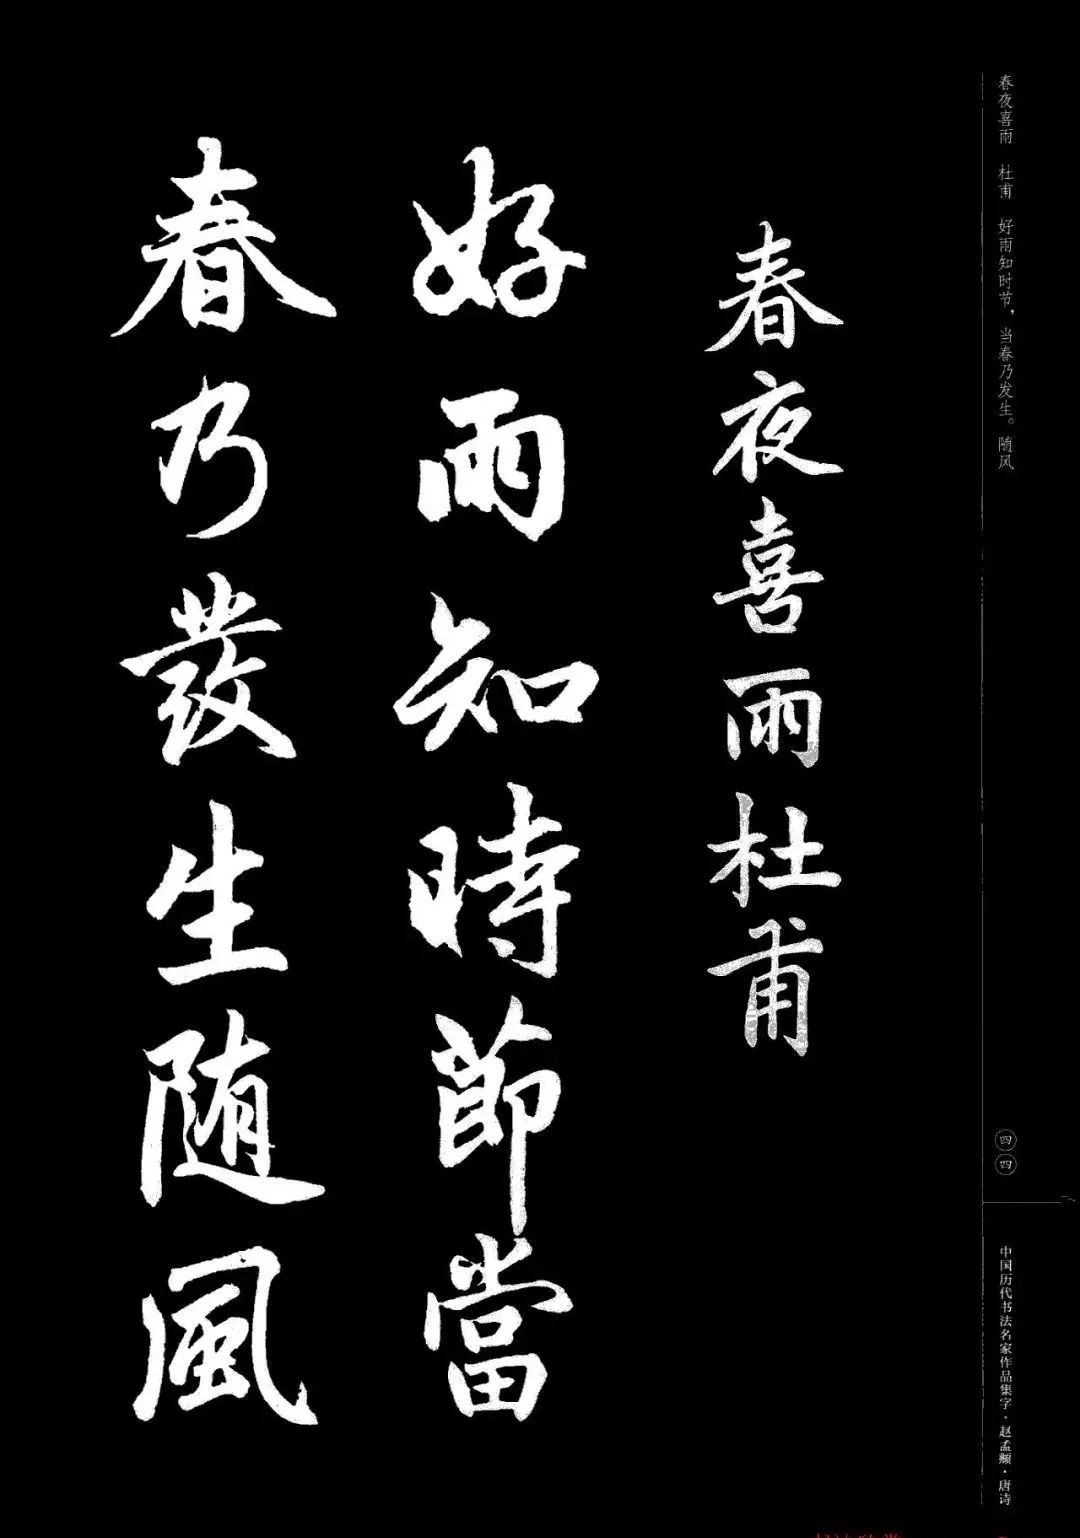 春夜喜雨　杜甫　好雨知时节，当春乃发生。随风
春夜喜雨杜甫
好雨知時節當
春乃發生随風
四四
中国历代书法名家作品集字·赵孟頫·唐诗